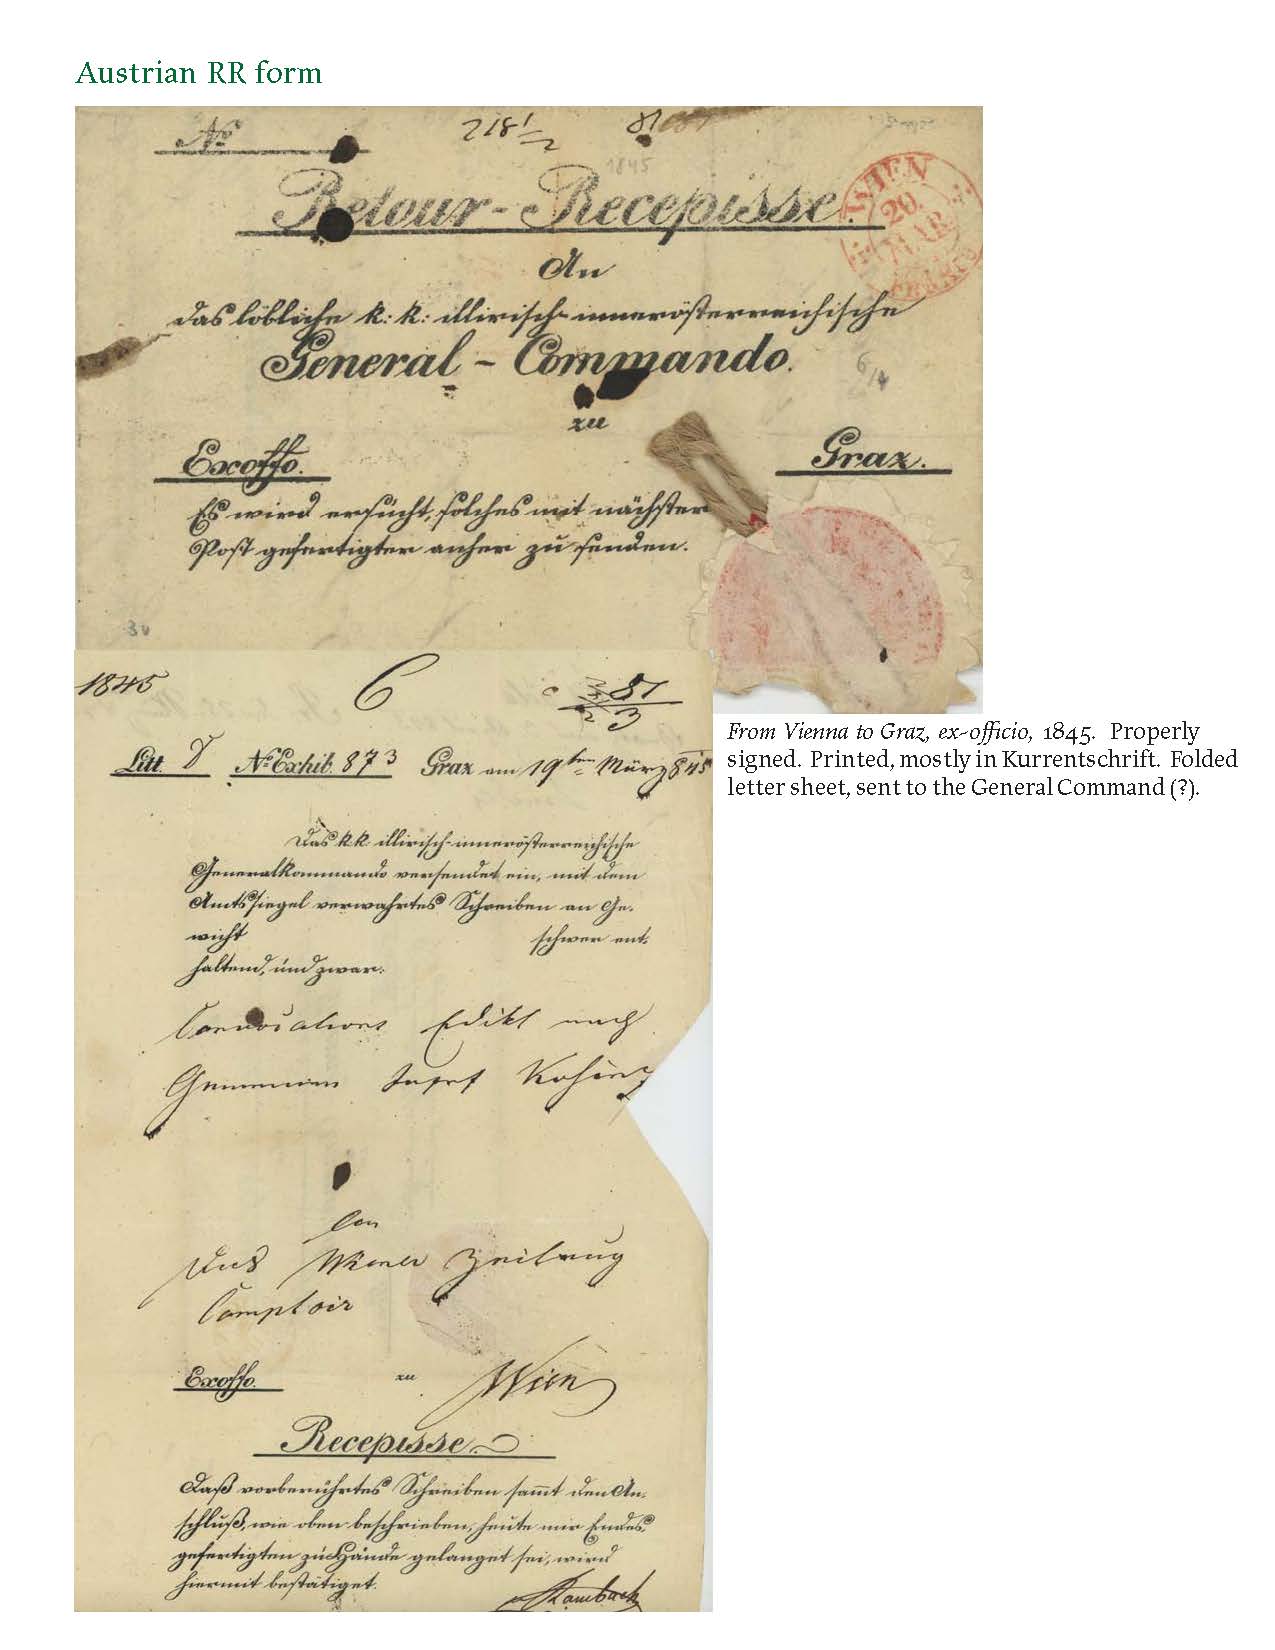 Austrian RR form
No
218 1/2 81
1845
Retour-Recepisse.
WIEN
20.
MÄR
An
das löbliche k: k: illirisch-innerösterreichische
General-Commando.
6/4
zu
Exoffo. Graz.
Es wird ersücht, solches mit nächster
Post gefertigter anher zu senden.
30
1845 C 81
3
Litt. D No Exhib. 873 Graz am 19ten März 845
Das k.k. illirisch-innerösterreichische
Generalkommando versendet ein, mit dem
Amtssiegel verwahrtes Schreiben an Ge-
wicht schwer ent-
haltend, und zwar:
Convocations Edikt nach
Gemeinen Josef
An
das Wiener Zeitung
Comptoir
Exoffo. zu Wien
Recepisse.
Daß vorberührtes Schreiben sammt den An-
schluß, wie oben beschrieben, heute mir Endes
gefertigten zu Hände gelanget sei, wird
hiermit bestätiget.
From Vienna to Graz, ex-officio, 1845. Properly
signed. Printed, mostly in Kurrentschrift. Folded
letter sheet, sent to the General Command (?).